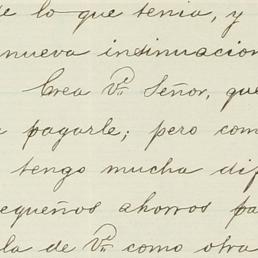 de lo que tenia, y
nueva insinuacion
Crea Vd Señor, que
a pagarle; pero com
tengo mucha dif
equeños ahorros pa
la de Vd como otra